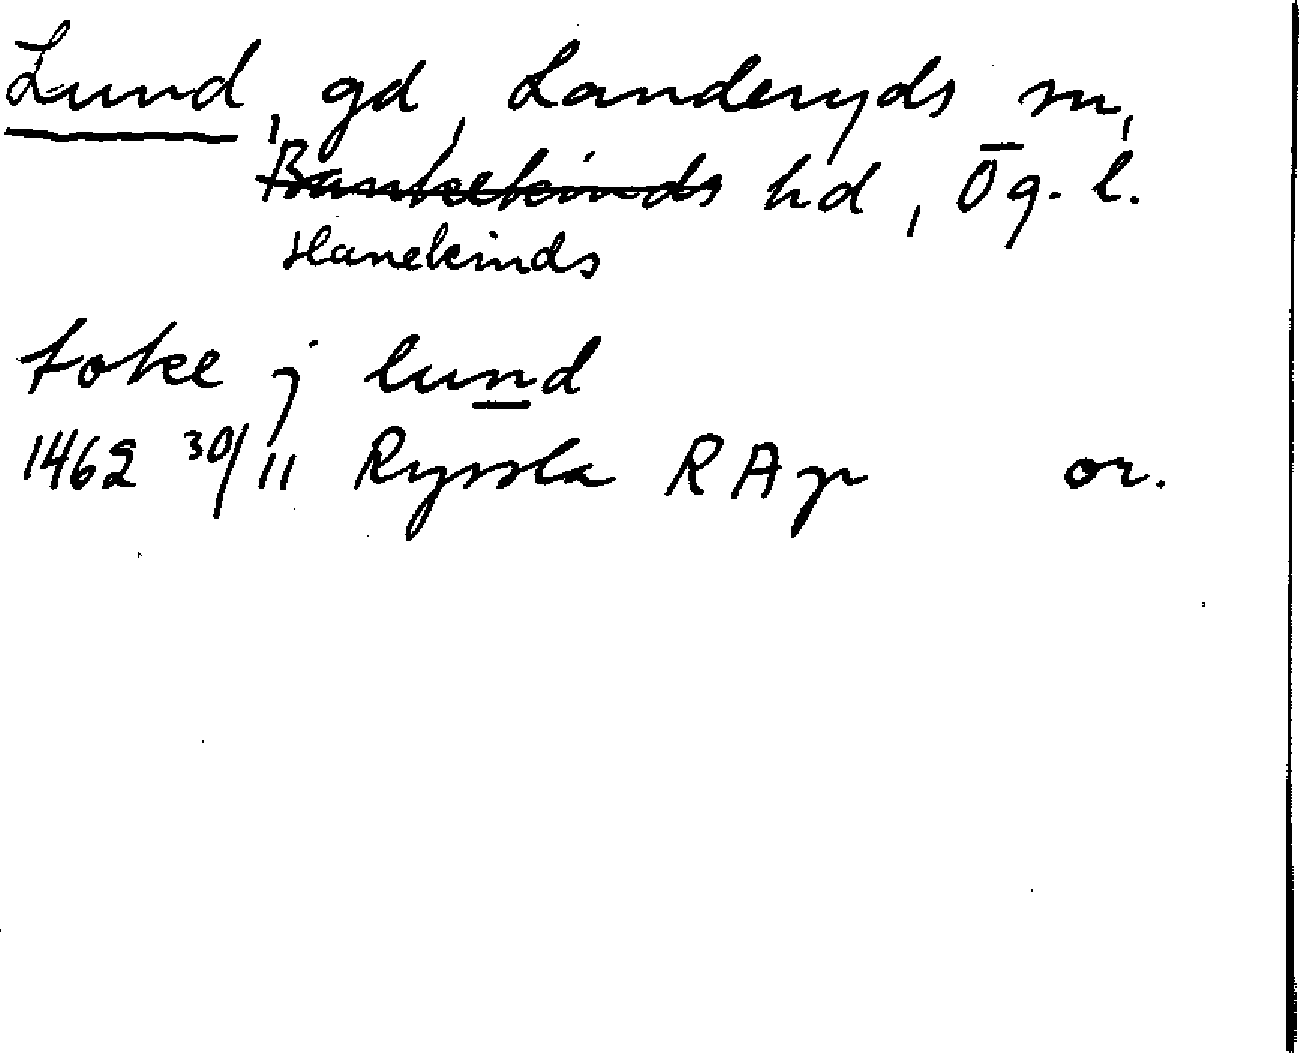 Lund, gd, Landeryds sn,
Bankekinds hd, Ög. l.
Hanekinds
toke j lund
1462 30/11 Ryssla RAp or.